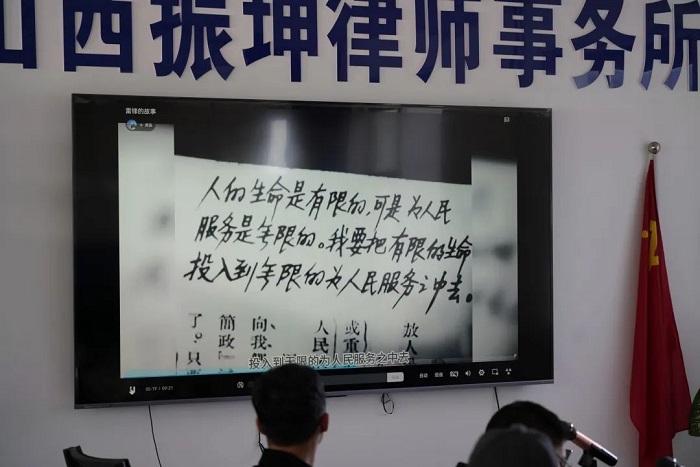 山西振坤律师事务所
雷锋的故事
人的生命是有限的,可是为人民
服务是无限的。我要把有限的生命
投入到无限的为人民服务之中去。
放人
或重
人民
向、我
簡政
了。只
投入到无限的为人民服务之中去
自动 倍速